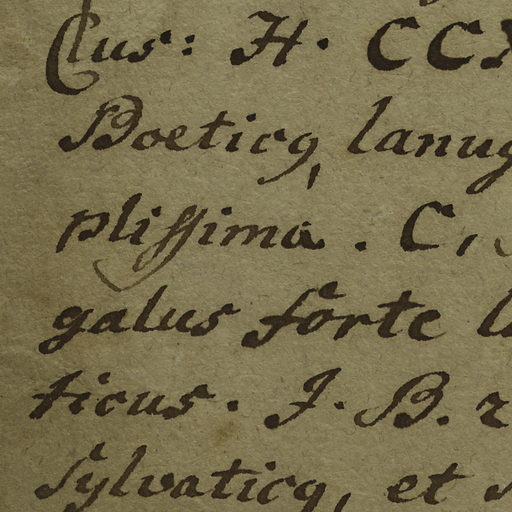 Clus: H. CC
Boeticq, lanug
plissima. C.
galus forte l
ticus. J. B. 2
sylvaticq, et